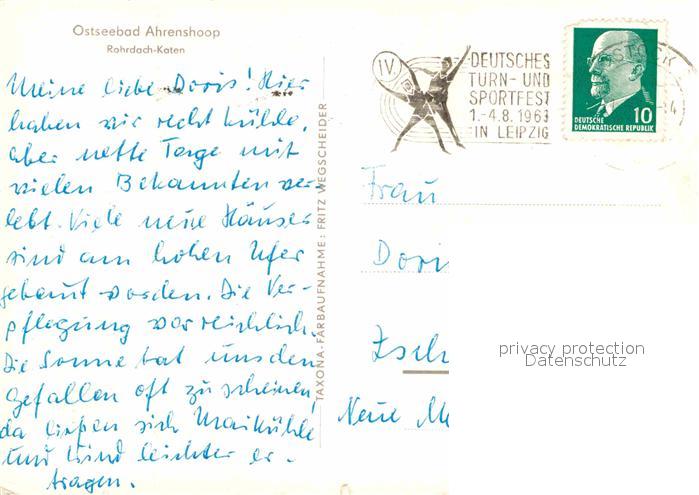 Ostseebad Ahrenshoop
Rohrdach-Katen
Meine liebe Doris! Hier
haben wir recht kühle,
aber nette Tage mit
vielen Bekannten ver-
lebt. Viele neue Häuser
sind am hohen Ufer
gebaut worden. Die Ver-
pflegung war reichlich.
Die Sonne tat uns den
Gefallen oft zu scheinen,
da ließen sich Maikühle
und Wind leichter er-
tragen.
TAXONA-FARBAUFNAHME: FRITZ WEGSCHEIDER
IV.
DEUTSCHES
TURN- UND
SPORTFEST
1.-4.8.1963
IN LEIPZIG
DEUTSCHE
DEMOKRATISCHE REPUBLIK
10
Frau
Doris
Zsch
Neue M
privacy protection
Datenschutz